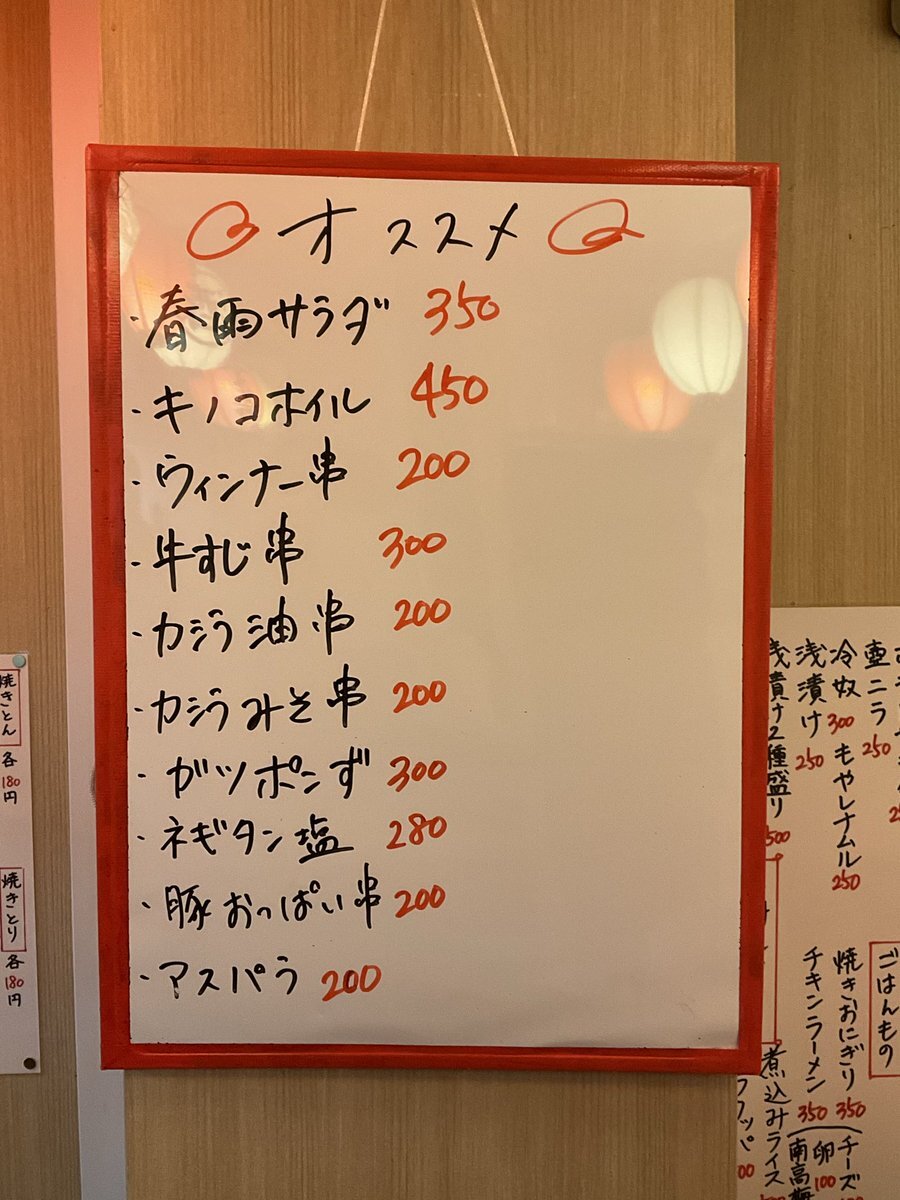 オススメ
・春雨サラダ 350
・キノコホイル 450
・ウィンナー串 200
・牛すじ串 300
・カシラ油串 200
・カシラみそ串 200
・ガツポンず 300
・ネギタン塩 280
・豚おっぱい串 200
・アスパラ 200
焼きとん
各180円
焼きとり
各180円
壺ニラ 250
冷奴 300
もやしナムル 250
浅漬け 250
浅漬け2種盛り 500
ごはんもの
焼きおにぎり 350
チーズ
卵 100
チキンラーメン 350
南高梅
煮込みライス